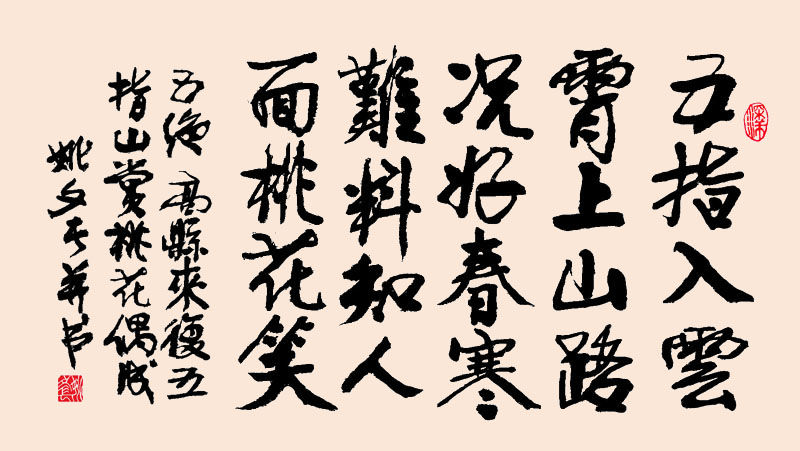 五指入雲
霄上山路
況好春寒
難料知人
面桃花笑
五绝 高縣來復五
指山賞桃花偶成
姚文并书